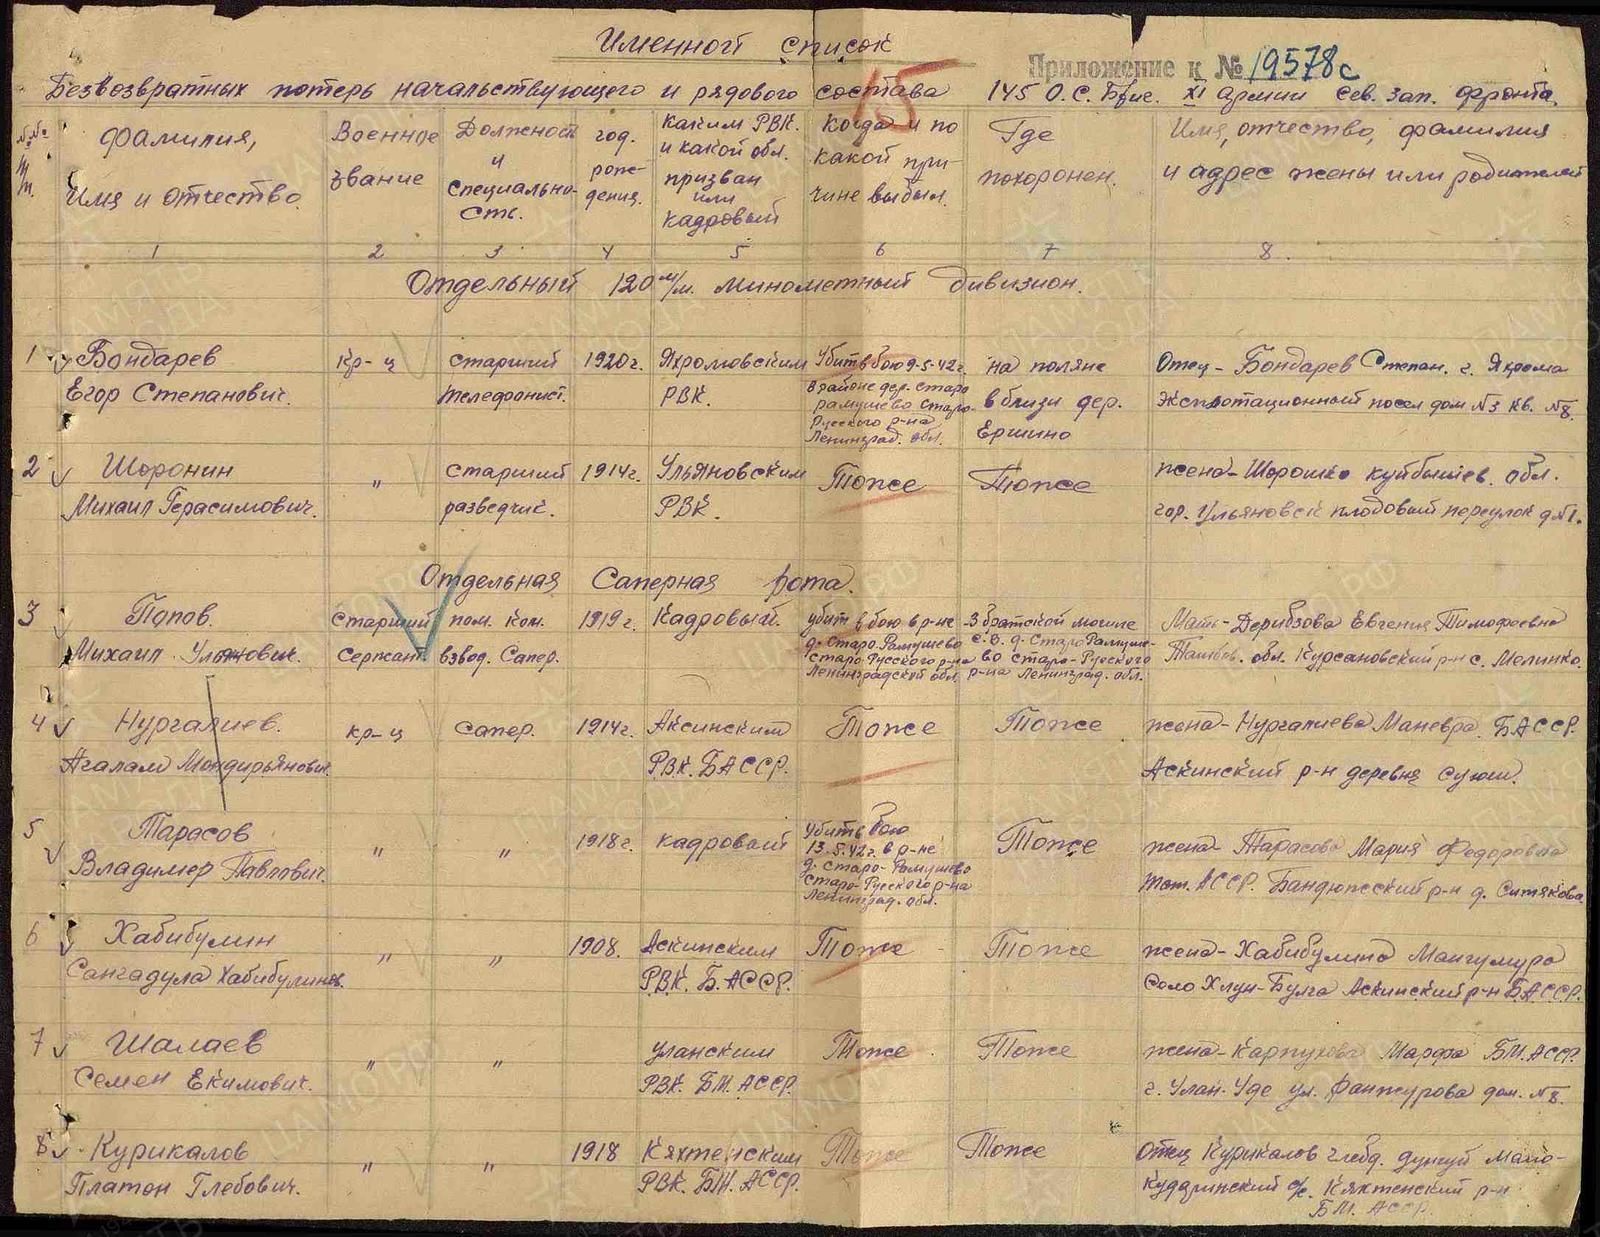 Именной список
Приложение к № 19578с
Безвозвратных потерь начальствующего и рядового состава 145 О.С. Бриг. XI Армии Сев. Зап. фронта.
15
№№ п/п. Фамилия, Имя и Отчество.
Военное звание
Должность и специальность.
год. рождения.
Каким РВК. и какой обл. призван или кадровый
Когда и по какой причине выбыл.
Где похоронен.
Имя, отчество, фамилия и адрес жены или родителей
1 2 3 4 5 6 7 8.
Отдельный 120 м/м. минометный дивизион.
1 Бондарев Кр-ц старший 1920г. Яхромовским Убит в бою 9-5-42г. на поляне Отец - Бондарев Степан. г. Яхрома
Егор Степанович. телефонист. РВК. в районе дер. Старо в близи дер. Эксплотационный посел дом №3 кв. №8.
рамушево Старо- Ершино
Русского р-на
Ленинград. обл.
2 Шоронин " старший 1914г. Ульяновским Тоже Тоже жена - Шорошко Куйбышев. обл.
Михаил Герасимович. разведчик. РВК. гор. Ульяновск плодовый переулок д №1.
Отдельная Саперная рота.
3 Попов. Старший пом. ком. 1919г. Кадровый. убит в бою в р-не В братской могиле Мать - Дерибзова Евгения Тимофеевна
Михаил Сержант взвод. Сапер. д. Старо Рамушево с.в. д. Старо Рамуше- Тамбов. обл. Курсановский р-н с. Мелинко.
Старо Русского р-на во старо-Русского
Ленинградской обл. р-на Ленинград. обл.
4 Нургалиев. кр-ц сапер. 1914г. Аксинским Тоже Тоже жена - Нургалиева Маневра. БАССР.
Агалам РВК. БАССР. Аскинский р-н деревня Суюш.
5 Тарасов " " 1918г. кадровый Убит в бою Тоже жена - Тарасова Мария Федоровна
Владимер Павлович. 13.5.42г. в р-не Тат. АССР. Бандюжский р-н д. Ситякова
д. Старо-Рамушево
Старо-Русского р-на
Ленинград. обл.
6 Хабибулин " " 1908. Аскинским Тоже Тоже жена - Хабибулина Мангумура
Сангадула Хабибулинов. РВК. Б. АССР. Село Хлун-Булга Аскинский р-н БАССР.
7 Шалаев " " уланским Тоже Тоже жена - Карпухова Марфа БМ. АССР.
Семен Екимович. РВК. БМ. АССР. г. Улан-Уде ул. Фанжурова дом. №8.
8 Курикалов " " 1918 Кяхтенским Тоже Тоже Отец Курикалов Глебд. дунгуй Мало-
Платон Глебович. РВК. БМ. АССР. Кударинский с/с. Кяхтенский р-н
БМ. АССР.